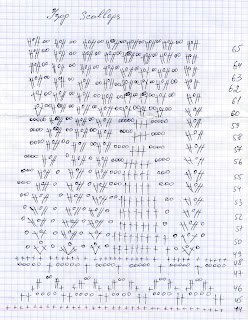 Scallops
65
64
63
62
61
60
59
58
57
56
55
54
53
52
51
50
49
48
47
46
45
44